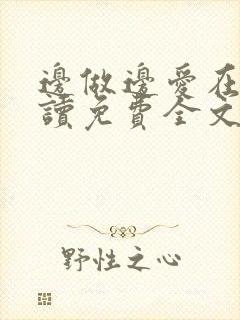 邊做邊愛在
讀免費全文
野性之心